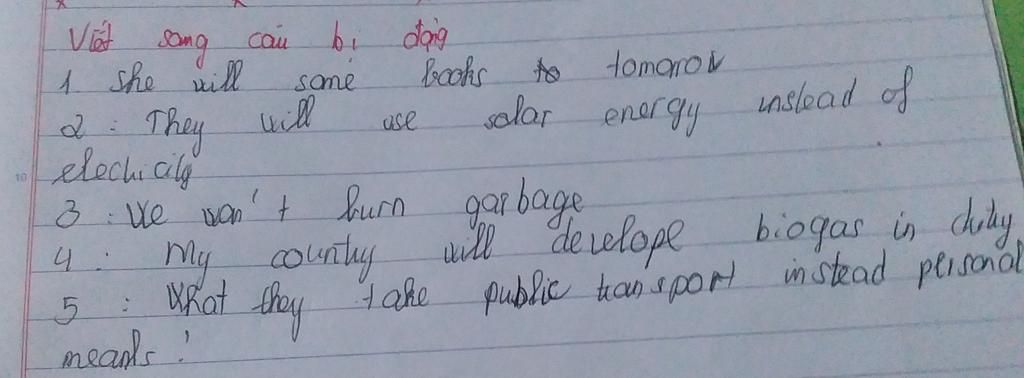 Viết sang câu bị động
1 She will some books to tomorow
2 : They will use solar energy instead of
electricity
3 : We won't burn garbage
4 : My country will develope biogas in
5 : What they take public transport instead personal
means !